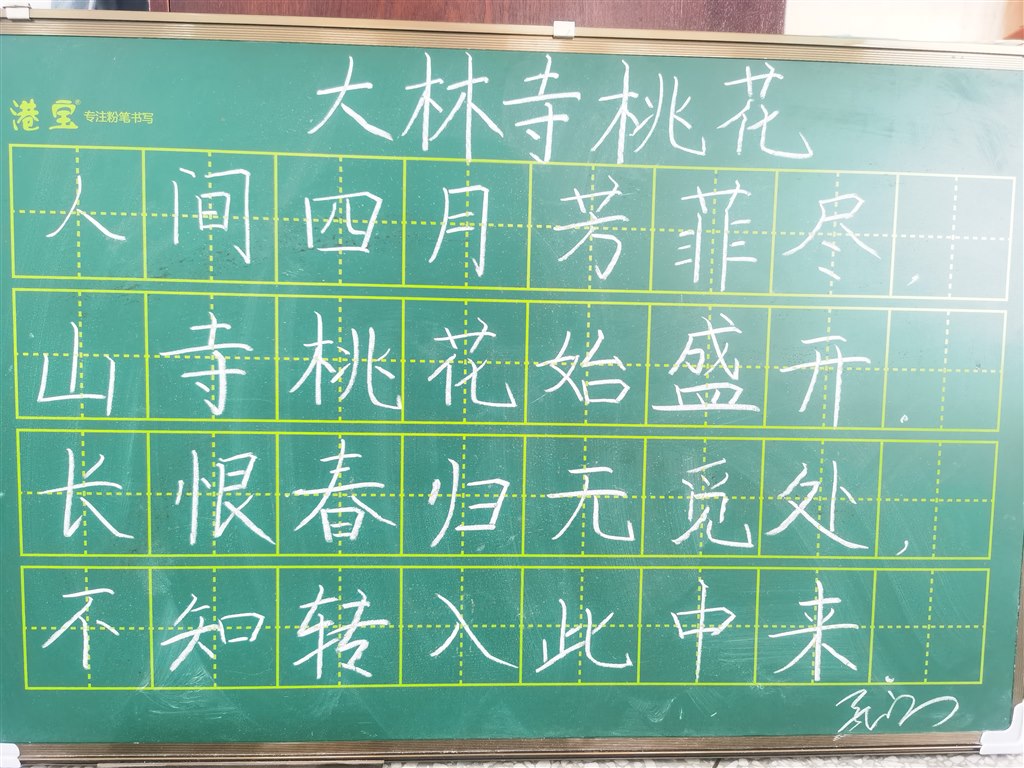 大林寺桃花
港宝 专注粉笔书写
人间四月芳菲尽,
山寺桃花始盛开.
长恨春归无觅处,
不知转入此中来.